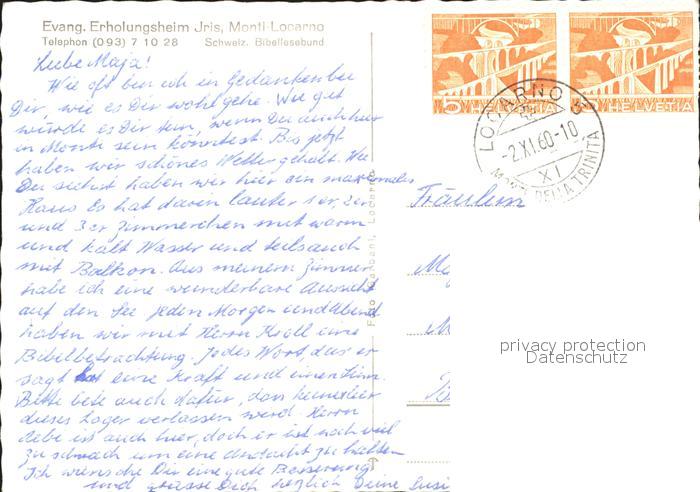 Evang. Erholungsheim Jris, Monti-Locarno
Telephon (093) 7 10 28 Schweiz. Bibellesebund
Liebe Maja!
Wie oft bin ich in Gedanken bei
Dir, wie es Dir wohl gehe. Wie gut
würde es Dir tun, wenn Du auch hier
in Monti sein könntest. Bis jetzt
haben wir schönes Wetter gehabt. Wie
Du siehst haben wir hier ein
Haus. Es hat darin lauter 1er, 2er
und 3er Zimmerchen mit warm
und kalt Wasser und teils auch
mit Balkon. Aus meinem Zimmer
habe ich eine wunderbare Aussicht
auf den See. Jeden Morgen und Abend
haben wir mit Herrn Kroll eine
Bibelbetrachtung. Jedes Wort, das er
sagt hat eine Kraft und einen Sinn.
Bitte bete auch dafür, dass keines hier
dieses Lager verlassen werd. Herrn
ist auch hier, doch er ist noch viel
zu schwach um eine Andacht zu halten
Ich wünsche Dir eine gute Besserung
und grüsse Dich herzlich Deine Susi
Foto Garbani, Locarno
5 HELVETIA
5 HELVETIA
LOCARNO 3
-2.XI.60-10
XI
MONTI DELLA TRINITA
Fräulein
privacy protection
Datenschutz